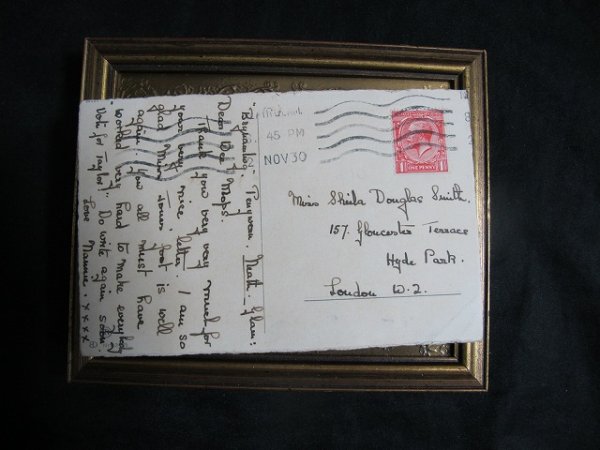 "Bryncoining" Pengwern. Neath. Glam:
Dear Wee Mops.
Thank you very very much for
your very nice letter. I am so
glad Miss Jones' foot is well
again. You all must have
worked very hard to make everybody
"Vote for Taylor!" Do write again soon.
Love Nannie. xxxx
45 PM
NOV 30
ONE PENNY
Miss Sheila Douglas Smith.
157. Gloucester Terrace
Hyde Park.
London W.2.